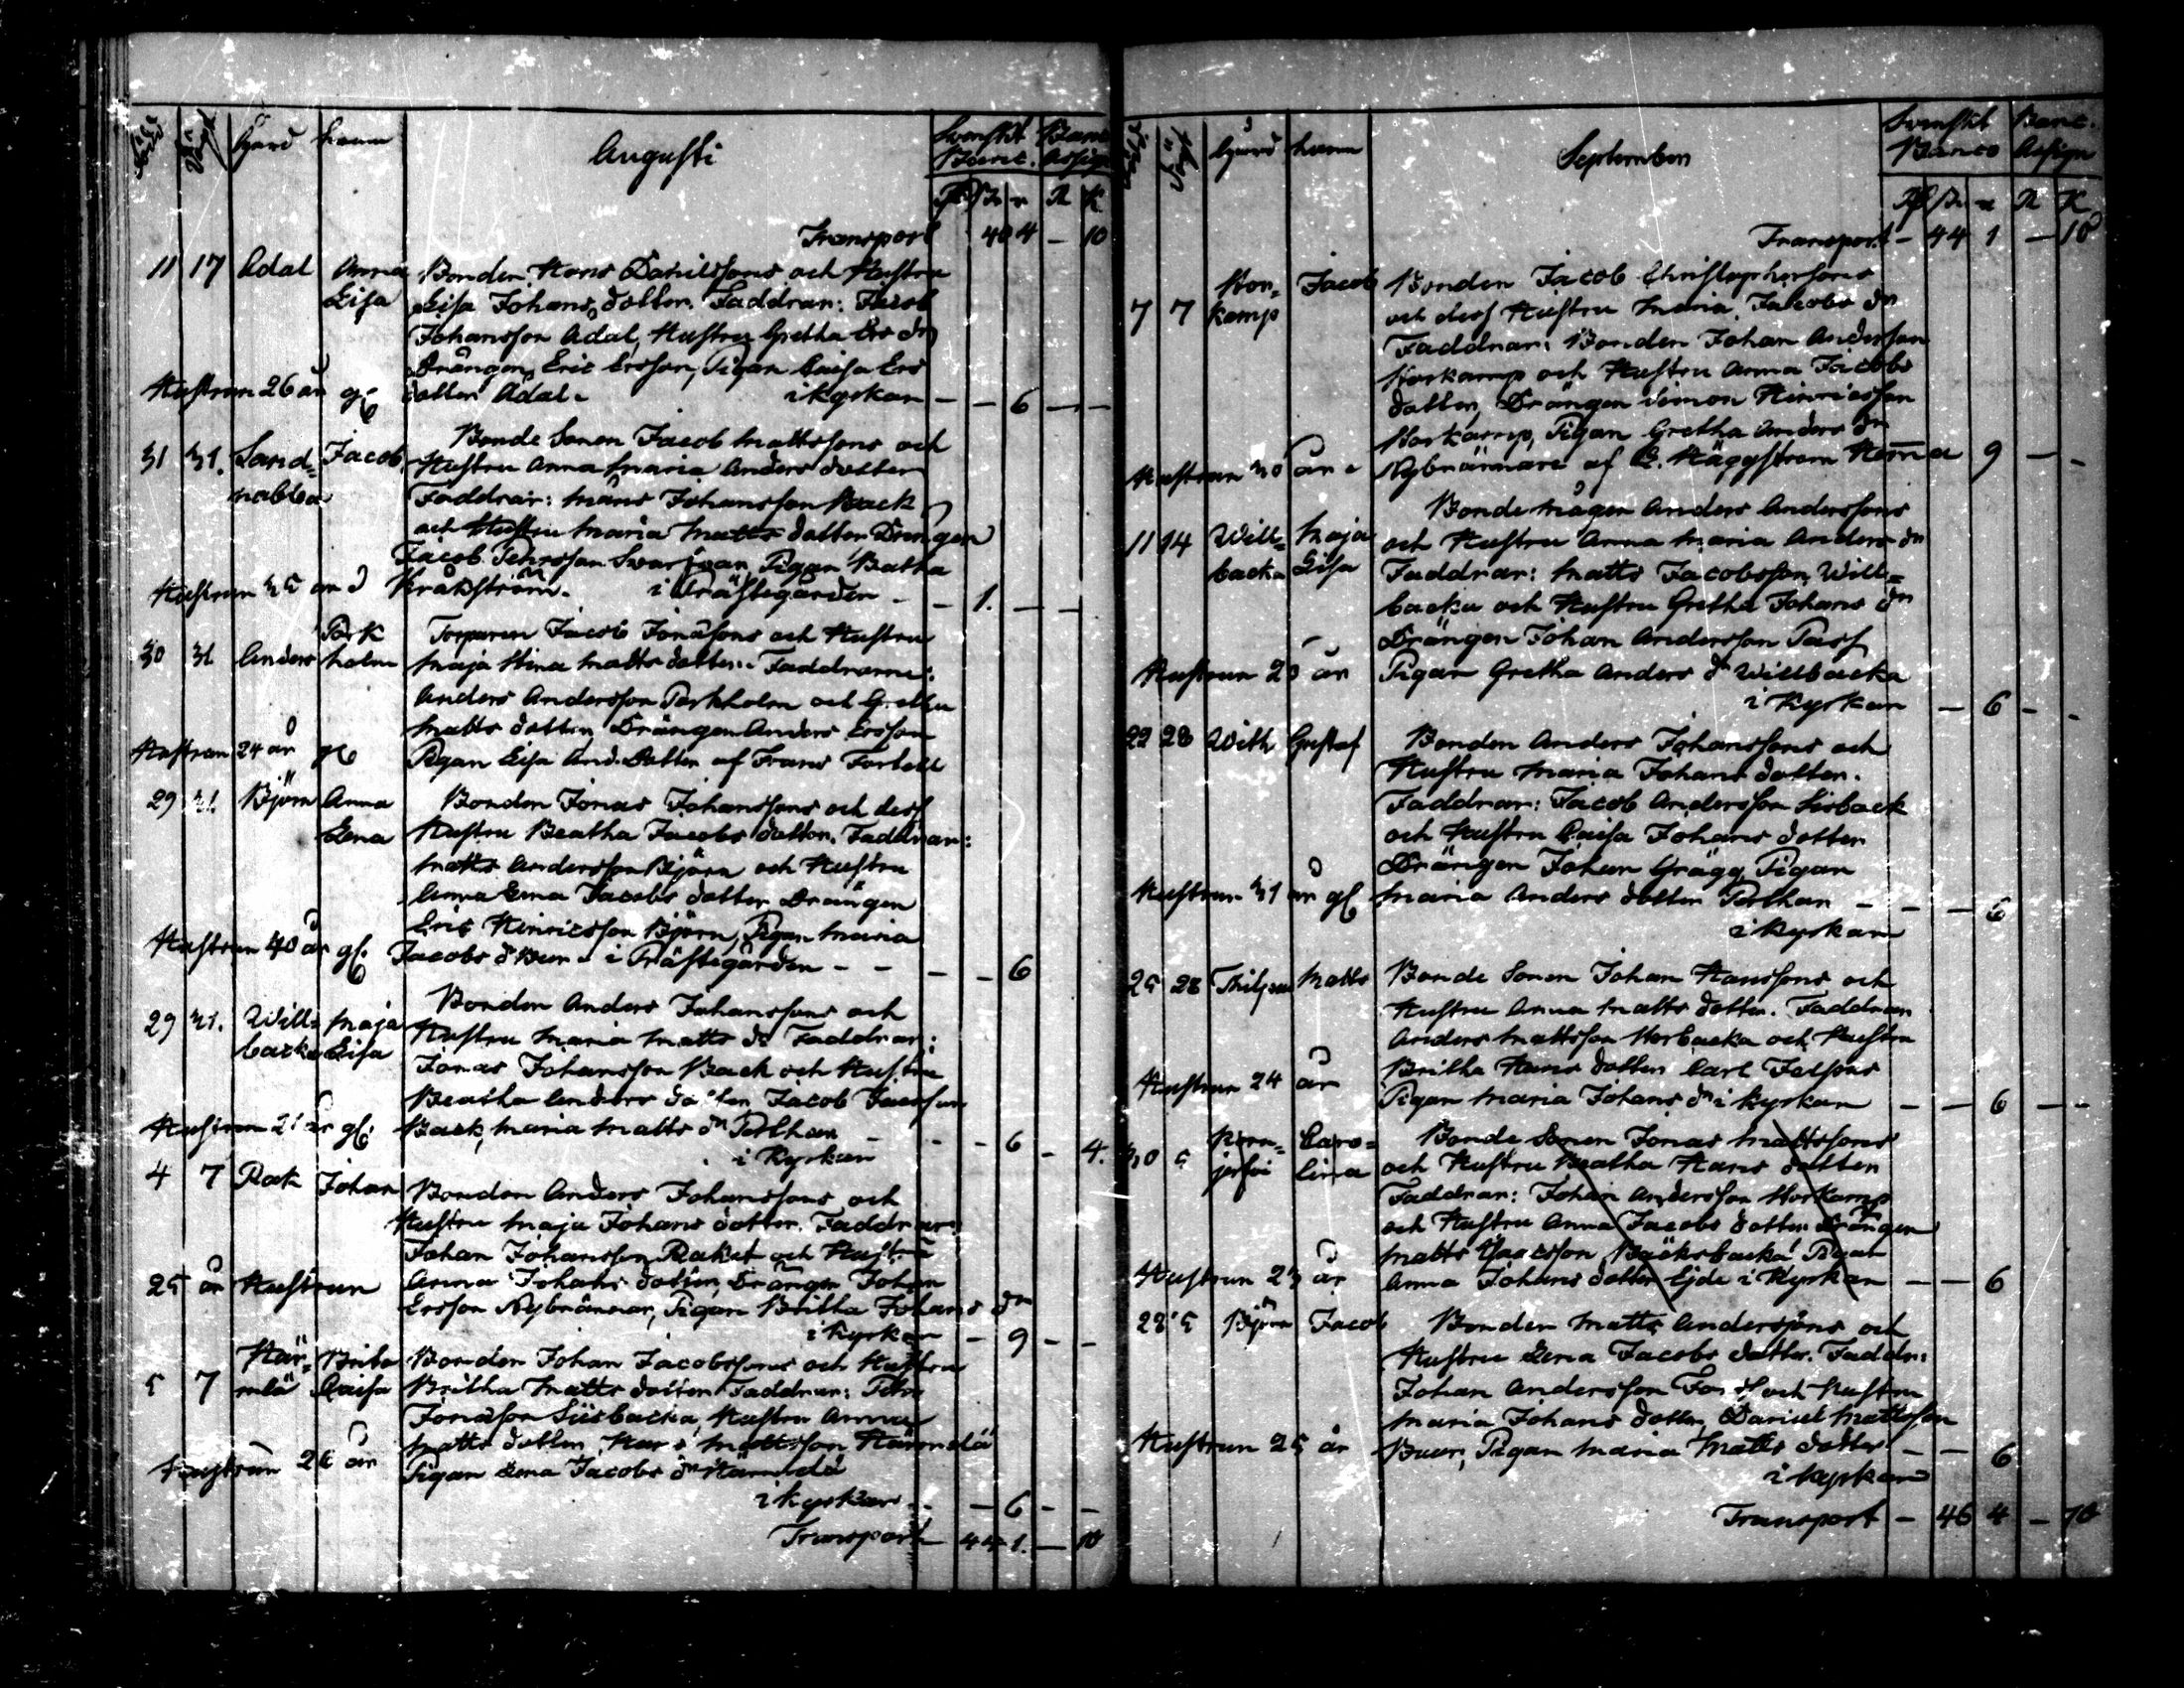 Gård Namn Augusti Svenskt Banc. Banc. Assign
Transport 40 4 – 10
11 17 Adal Anna Lisa Bonden Hans Danielssons och Hustru
Lisa Johans dotter. Faddrar: Jacob
Johansson Adal, Hustru Gretha Ers dr
Drängen Eric Ersson, Pigan Caisa Ers
Hustrun 26 år gl dotter Adal. i kyrkan – – 6 – –
31 31. Sand= Jacob Bonde Sonen Jacob Mattssons och
nabba Hustru Anna Maria Anders dotter
Faddrar: Måns Johansson Back
och Hustru Maria Matts dotter Drängen
Jacob Pehrsson Svarfvar Pigan Beatha
Hustrun 35 år Kråkström. i Prästegården – – 1. – –
Torparen Jacob Jonasons och Hustru
30 31 Anders Parkholm Maja Stina Matts dotter. Faddrarne:
Anders Andersson Parkholm och Gretha
Matts dotter, Drängen Anders Ersson
Hustrun 24 år gl Pigan Lisa And. Dotter af Frans Forsell
29 31 Björn Anna Bonden Jonas Johanssons och dess
Lena Hustru Beatha Jacobs dotter. Faddrar:
Matts Andersson Björn och Hustru
Anna Lena Jacobs dotter Drängen
Eric Hinricsson Björn, Pigan Maria
Hustrun 40 år gl. Jacobs d Buur i Prästegården – – – – 6
Bonden Anders Johanssons och
29 31. Will= Maja Hustru Maria Matts dr Faddrar:
backa Lisa Jonas Johansson Back och Hustru
Beatha Anders dotter Jacob
Hustrun år gl. Back, Maria Matts dr Perthan – – – 6 – 4.
i Kyrkan
4 7 Rak Johan Bonden Anders Johanssons och
Hustru Maja Johans dotter. Faddrar:
Johan Johansson Rak och Hustru
25 år Hustrun Anna Johans dotter, Drängen Johan
Ersson Nybrännar, Pigan Britha Johans dr
i kyrkan – 9 – –
Här= Brita Bonden Johan Jacobssons och Hustru
5 7 mlä Caisa Britha Matts dotter Faddrar:
Jonasson Hustru Anna
Matts dotter, Hans Mattsson Härmlä
Hustrun 26 år Pigan Lena Jacobs dr Härmlä
i kyrkan – – 6 – –
Transport 44 1. – 10
Gård Namn September Svenskt Banco Banc. Assign
Transport – 44 1 – 10
Hor= Jacob Bonden Jacob Christophersons
7 7 kamp och dess Hustru Maria Jacobs dr
Faddrar: Bonden Johan Andersson
Horkamp och Hustru Anna Jacobs
dotter, Drängen Simon Hinricsson
Horkamp, Pigan Gretha Anders dr
Hustrun 30 år Nybrännars af C. Häggström Hemma 9 – –
Bonde Mågen Anders Anderssons
11 14 Will= Maja och Hustru Anna Maria Anders dr
backa Lisa Faddrar: Matts Jacobsson, Will=
backa och Hustru Gretha Johans dr
Drängen Johan Andersson Pass
Hustrun 20 år Pigan Gretha Anders dr Willbacka
i Kyrkan – 6 – –
22 28 With Gustaf Bonden Anders Johanssons och
Hustru Maria Johans dotter.
Faddrar: Jacob Andersson Lisback
och Hustru Caisa Johans dotter
Drängen Johan Grägg, Pigan
Hustrun 31 år gl Maria Anders dotter Perthan – – – 6
i Kyrkan
25 28 Thilman Matts Bonde Sonen Johan Hanssons och
Hustru Anna Matts dotter. Faddrar
Anders Mattsson Horbacka och Hustru
Britha Hans dotter Carl
Hustrun 24 år Pigan Maria Johans dr i kyrkan – – 6 – –
30 5 Caro= Bonde Sonen Jonas Mattssons
lina och Hustru Beatha Hans dotter
Faddrar: Johan Andersson Horkamp
och Hustru Anna Jacobs dotter Drängen
Matts Isacsson Bäcksbacka Pigan
Hustrun 23 år Anna Johans dotter Ejde i Kyrkan – – 6
28 5 Björn Jacob Bonden Matts Anderssons och
Hustru Lena Jacobs dotter. Faddr:
Johan Andersson och Hustru
Maria Johans dotter, Daniel Mattsson
Hustrun 25 år Buur, Pigan Maria Matts dotter – – 6
i kyrkan
Transport – 46 4 – 10